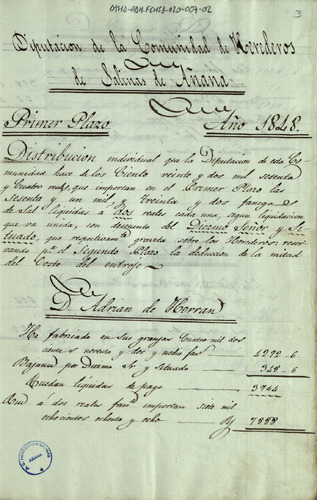 ATHA-DAH-FCHTA-020-007-02
3
Diputacion de la Comunidad de Herederos
de Salinas de Añana
Primer Plazo Año 1848.
Distribucion individual que la Diputacion de esta Co-
munidad hace de los Ciento veinte y dos mil sesenta
y cuatro que importan en el Primer Plazo las
Sesenta y un mil Treinta y dos fanegas
de Sal liquidas a dos reales cada una, segun liquidacion
que va unida, con descuento del Diezmo Señor y Si-
tuado, que respectivamente gravita sobre los Herederos: reser-
vando p.a el Segundo Plazo la deduccion de la mitad
del Costo del entroje
D. Adrian de Herran
Ha fabricado en sus granjas Cuatro mil dos
cientos noventa y dos y media fan.s 4292-6
Bajanse por Diezmo S.or y Situado 348-6
Quedan liquidas de pago 3944
Que á dos reales fan.a importan siete mil
ochocientos ochenta y ocho 7888
Añana